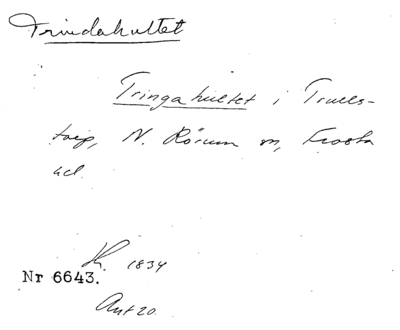 Trindahultet
Tringahultet i Trulls-
torp, N. Rörum sn, Frosta
hd.
K. 1834
Nr 6643.
Ant 20.